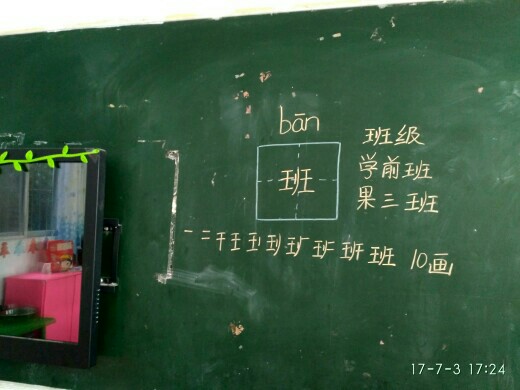 bān
班
班级
学前班
果三班
一 二 干 王 班 10画
17-7-3 17:24